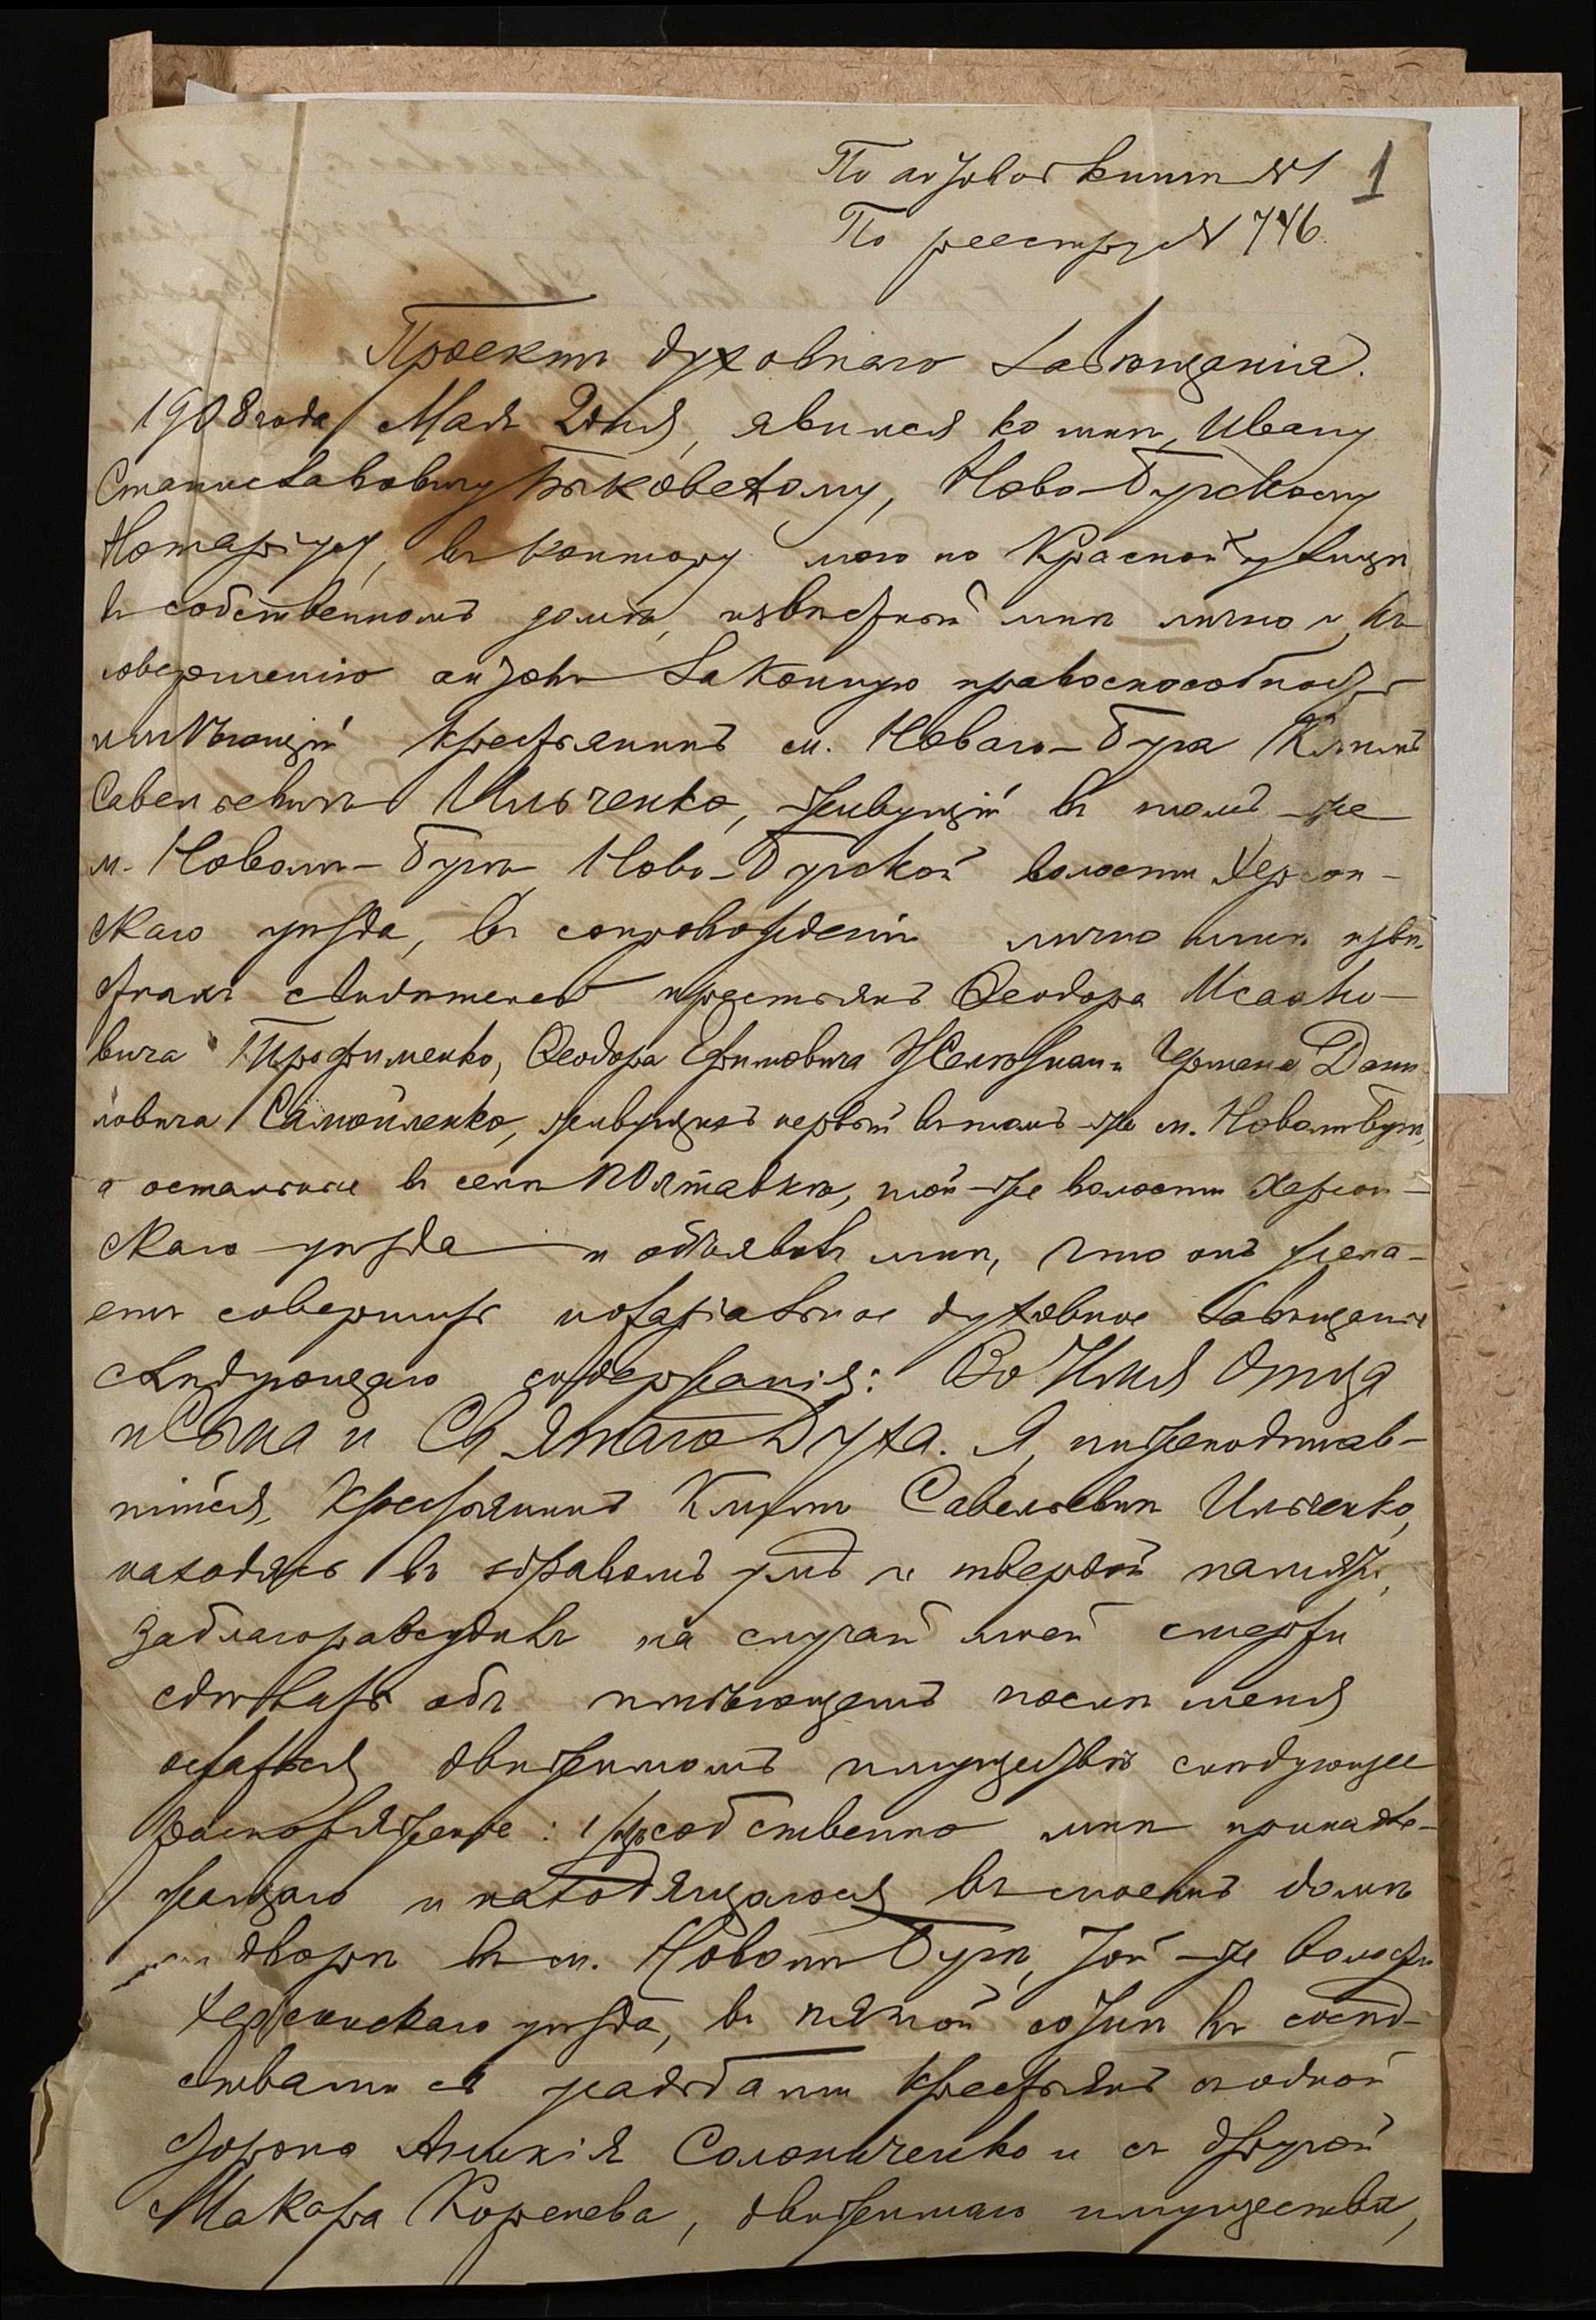 По актовой книгѣ №1 1
По реестру № 746.
Проектъ духовнаго завѣщанія.
1908 года Мая 2 дня, явился ко мнѣ, Ивану
Станиславовичу Быковскому, Ново-Бугскому
Нотаріусу, въ контору мою по Красной улицѣ
въ собственномъ домѣ, извѣстный мнѣ лично и къ
совершенію актовъ законную правоспособность
имѣющій крестьянинъ м. Новаго-Буга Климъ
Савельевичъ Ильченко, живущій въ томъ-же
м. Новомъ-Бугѣ Ново-Бугской волости Херсон-
скаго уѣзда, въ сопровожденіи лично мнѣ извѣ-
стныхъ свидѣтелей крестьянъ Ѳеодора Исаако-
вича Трофименко, Ѳеодора Ефимовича и Дани
ловича Самойленко, живущихъ первый въ томъ-же м. Новомъ Бугѣ,
а остальные въ селѣ Полтавкѣ, той-же волости Херсон-
скаго уѣзда и объявилъ мнѣ, что онъ жела-
етъ совершить нотаріальное духовное завѣщаніе
слѣдующаго содержанія: Во Имя Отца
и Сына и Святаго Духа. Я, нижеподписав-
шійся, крестьянинъ Климъ Савельевичъ Ильченко,
находясь въ здравомъ умѣ и твердой памяти,
заблагоразсудилъ на случай моей смерти
сдѣлать объ имѣющемъ послѣ меня
остаться движимомъ имуществѣ слѣдующее
распоряженіе: 1, собственно мнѣ принадле-
жащаго и находящагося въ моемъ домѣ
и дворѣ въ м. Новомъ Бугѣ, той-же волости
Херсонскаго уѣзда, въ пятой сотнѣ въ сосѣд-
ствами съ усадьбами крестьянъ съ одной
стороны Солониченко и съ другой
Макара Коренева, движимаго имущества,